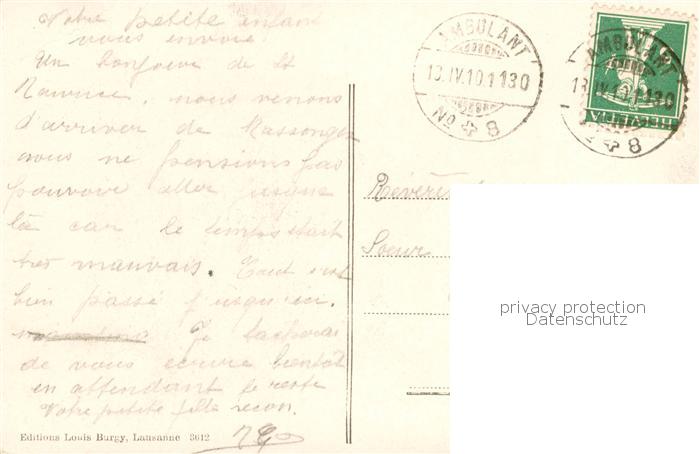 Votre petite enfant
vous envoie
Un bonjour de St
Maurice, nous venons
d'arriver de Massongex
nous ne pensions pas
pouvoir aller jusque
là car le temps était
très mauvais. Tout s'est
bien passé jusqu'ici.
Je tacherai
de vous écrire bientôt
en attendant je reste
Votre petite fille recon.
Editions Louis Burgy, Lausanne 3612
AMBULANT
13.IV.10.1130
No 8
AMBULANT
13.IV.10.1130
8
HELVETIA
Révér
Soeur
privacy protection
Datenschutz